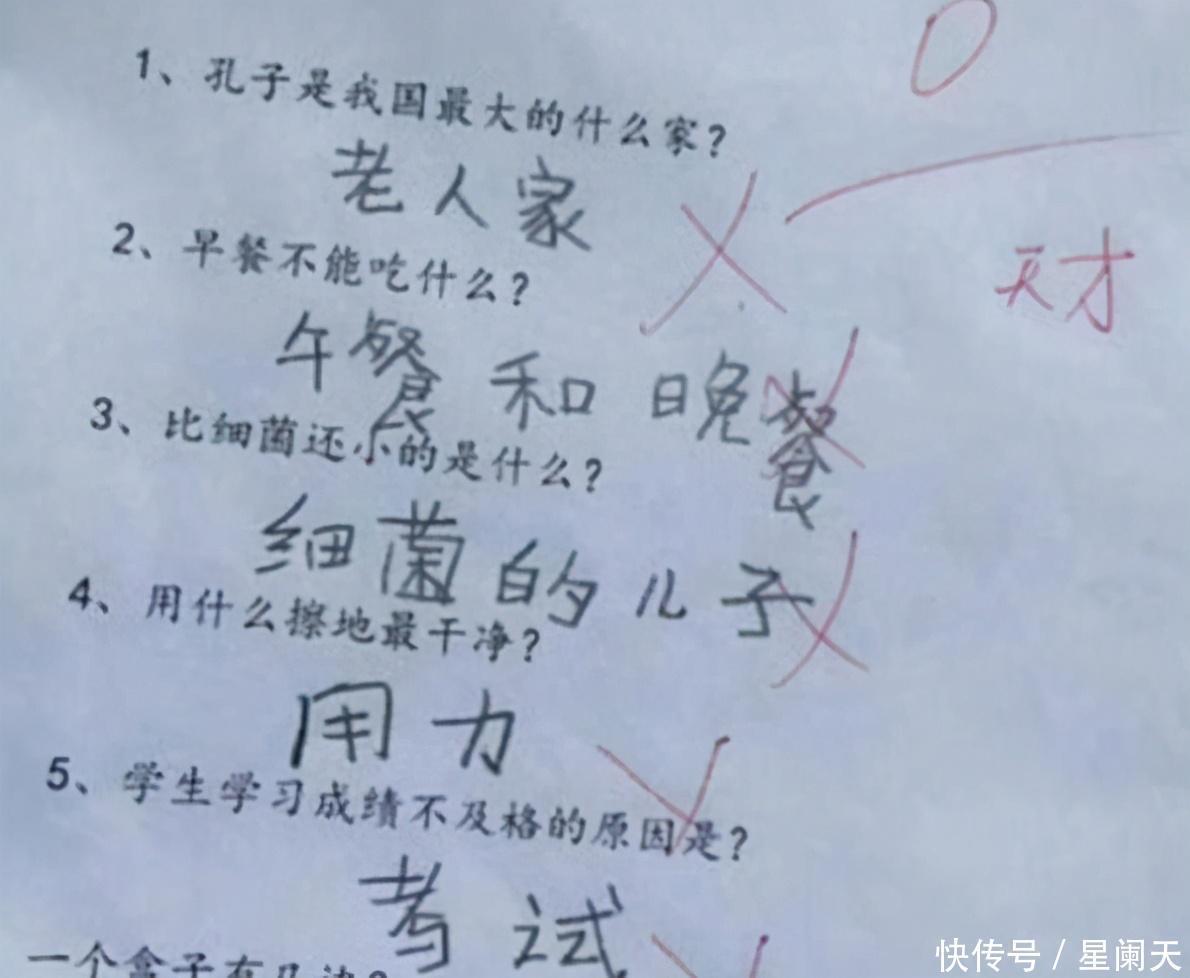 0
1、孔子是我国最大的什么家?
老人家
天才
2、早餐不能吃什么?
午餐和晚餐
3、比细菌还小的是什么?
细菌的儿子
4、用什么擦地最干净?
用力
5、学生学习成绩不及格的原因是?
考试
一个盒子有几边?
快传号 / 星阑天